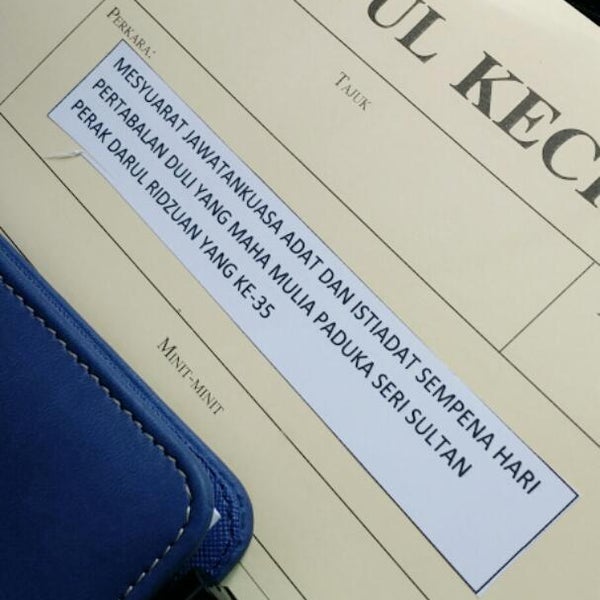 UL KECI
TAJUK
PERKARA:
MESYUARAT JAWATANKUASA ADAT DAN ISTIADAT SEMPENA HARI
PERTABALAN DULI YANG MAHA MULIA PADUKA SERI SULTAN
PERAK DARUL RIDZUAN YANG KE-35
MINIT-MINIT